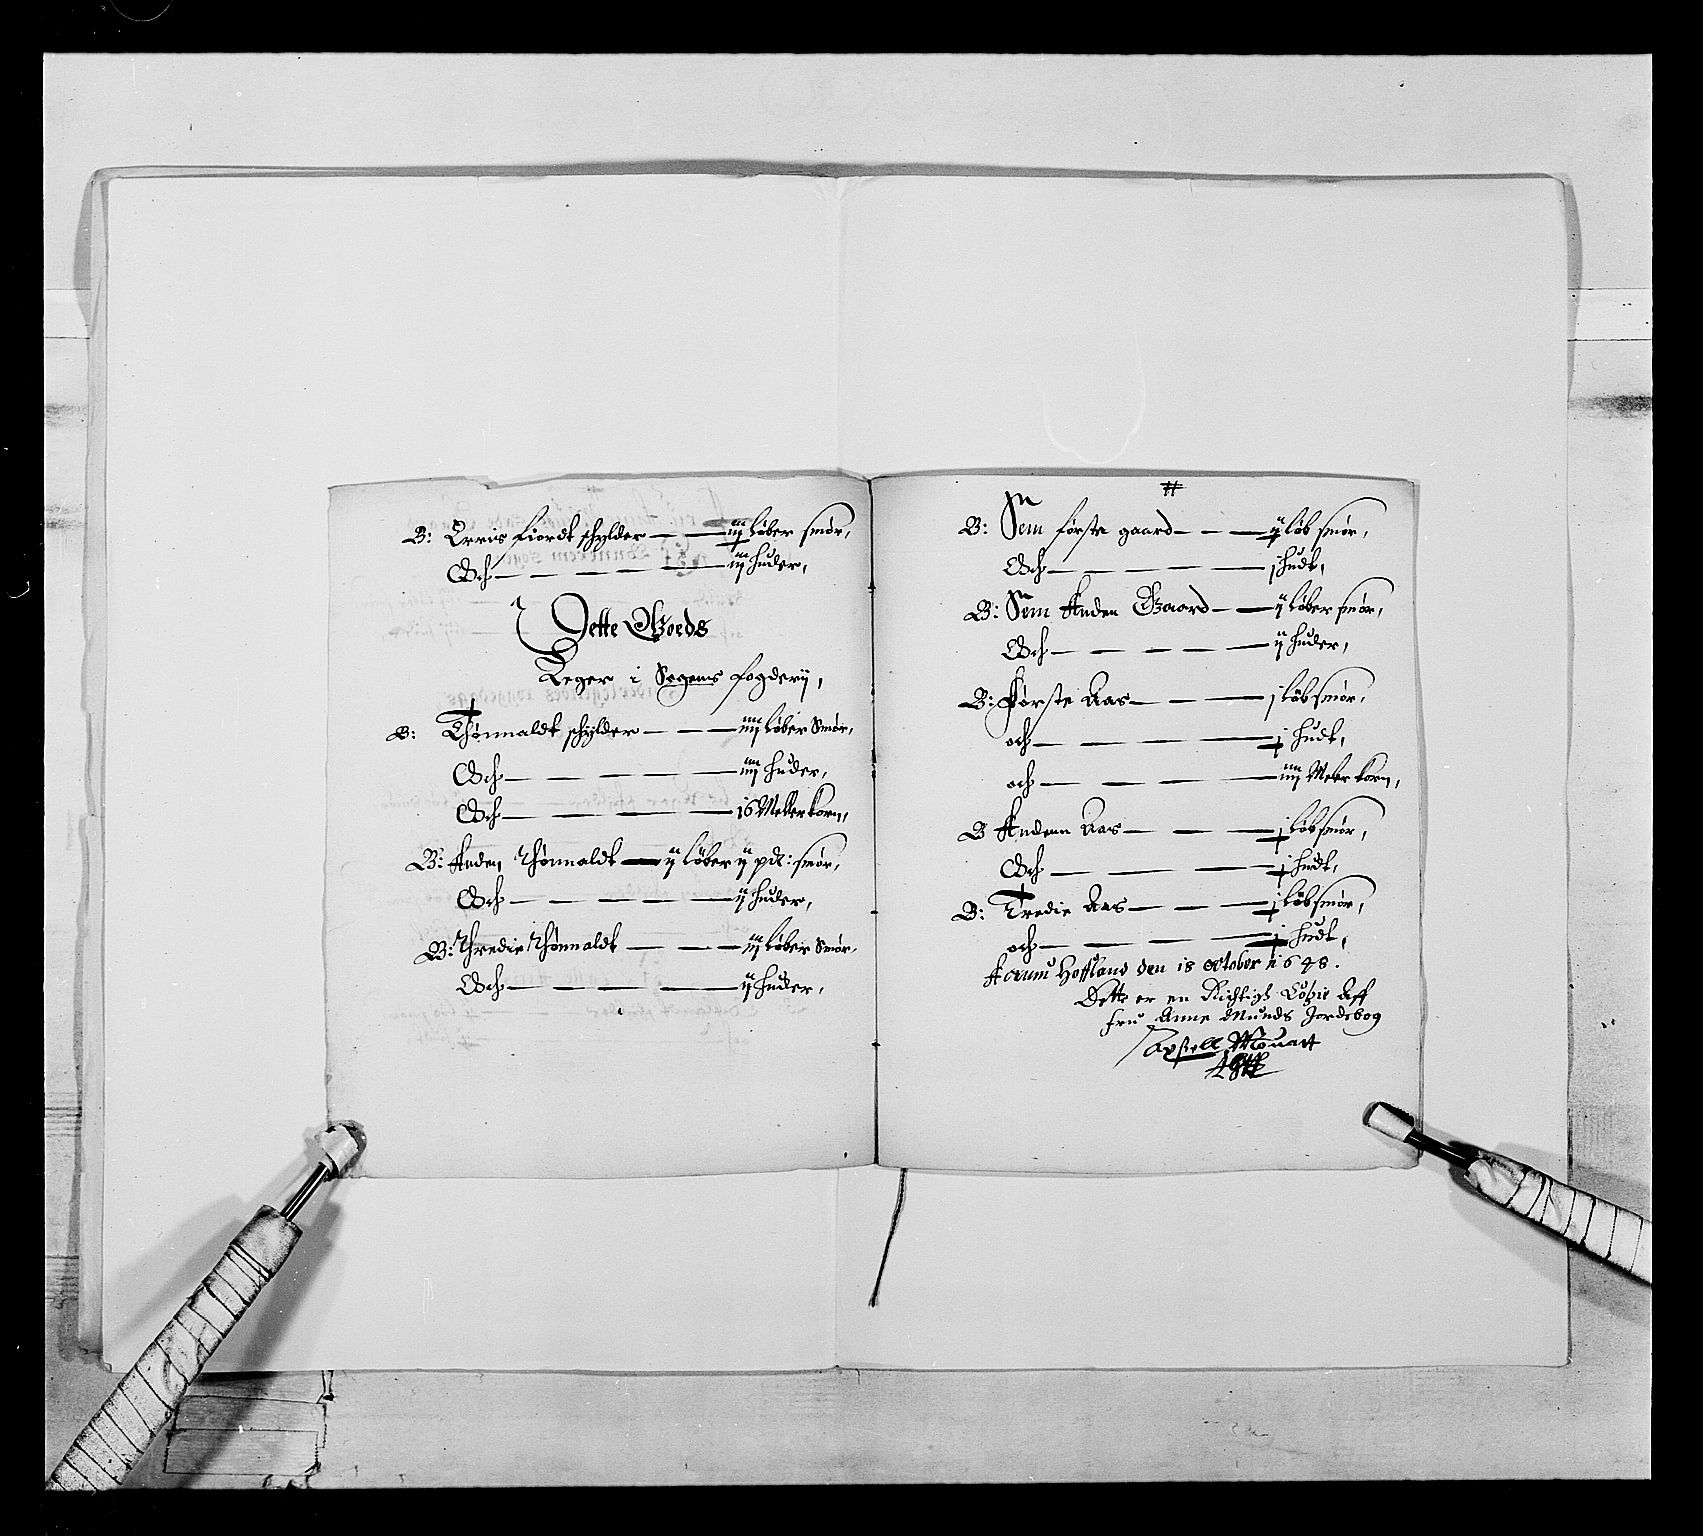 B: Erris fiordt schylder — — iij løber smør,
Och — — — — — iij huder,
Dette Goeds
Leger i Sogens fogderij,
B: Thønnaldt schylder — — — iiij løber Smør,
Och — — — — — iiij huder,
Och — — — — — 16 Meller korn,
B: Anden Thønnaldt — ij løber ij pd: smør,
Och — — — — — ij huder,
B: Thredie Thønnaldt — — — iij løber Smør,
Och — — — — — ij huder,
B: Sem første gaard — — — ij løb smør,
Och — — — — — j hudt,
B: Sem Anden Gaard — — ij løber smør,
Och — — — — — ij huder,
B: Første Aas — — — j løb smør,
och — — — — — j hudt,
och — — — — — iiij Meler korn,
B Anden Aas — — — j løb smør,
Och — — — — — j hudt,
B: Tredie Aas — — — j løb smør,
och — — — — — j hudt,
Actum Hoffland den 18 october 1648.
Dette er en Richtigh Copie Aff
fru Anne Munds Jordebog
Axsell Mouatt